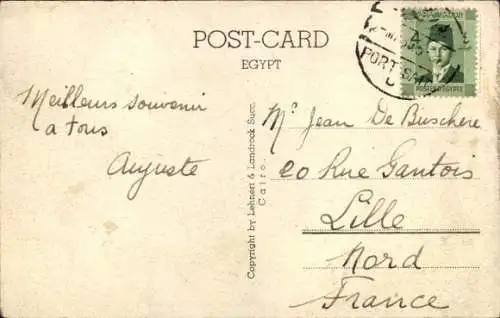 POST-CARD
EGYPT
POSTES D'EGYPTE
PORT-SAID
Meilleurs souvenir
a tous
Auguste
Copyright by Lehnert & Landrock Succ.
Cairo.
Mr Jean De Buschere
20 Rue Gantois
Lille
Nord
France